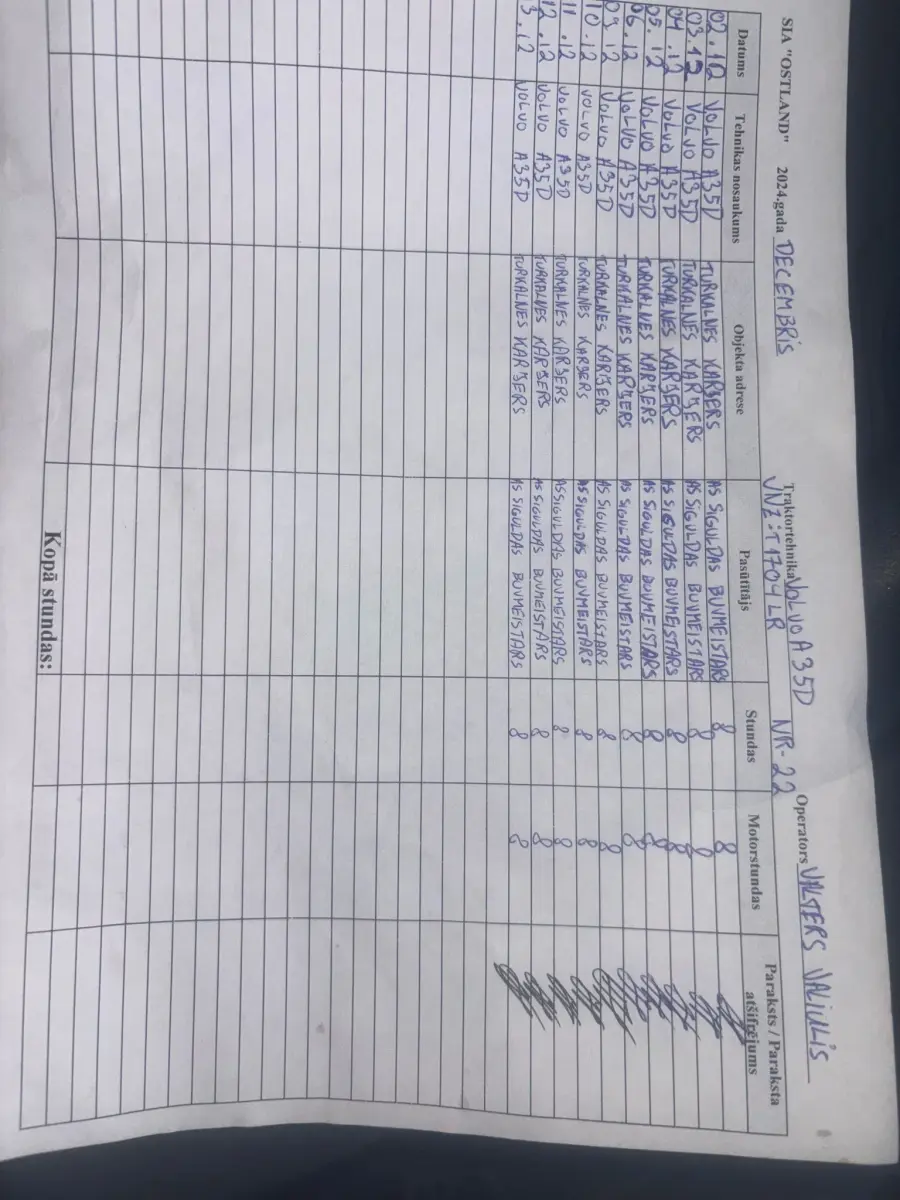 SIA "OSTLAND" 2024.gada DECEMBRIS Traktortehnika VOLVO A35D NR-22 Operators VALTERS VALIULIS
VNZ:T1704LR
Datums Tehnikas nosaukums Objekta adrese Pasūtītājs Stundas Motorstundas Paraksts / Paraksta atšifrējums
02.12 VOLVO A35D TURKALNES KARJERS AS SIGULDAS BUVMEISTARS 8 8
03.12 VOLVO A35D TURKALNES KARJERS AS SIGULDAS BUVMEISTARS 8 8
04.12 VOLVO A35D TURKALNES KARJERS AS SIGULDAS BUVMEISTARS 8 8
05.12 VOLVO A35D TURKALNES KARJERS AS SIGULDAS BUVMEISTARS 8 8
06.12 VOLVO A35D TURKALNES KARJERS AS SIGULDAS BUVMEISTARS 8 8
09.12 VOLVO A35D TURKALNES KARJERS AS SIGULDAS BUVMEISTARS 8 8
10.12 VOLVO A35D TURKALNES KARJERS AS SIGULDAS BUVMEISTARS 8 8
11.12 VOLVO A35D TURKALNES KARJERS AS SIGULDAS BUVMEISTARS 8 8
12.12 VOLVO A35D TURKALNES KARJERS AS SIGULDAS BUVMEISTARS 8 8
3.12 VOLVO A35D TURKALNES KARJERS AS SIGULDAS BUVMEISTARS 8 8
Kopā stundas: